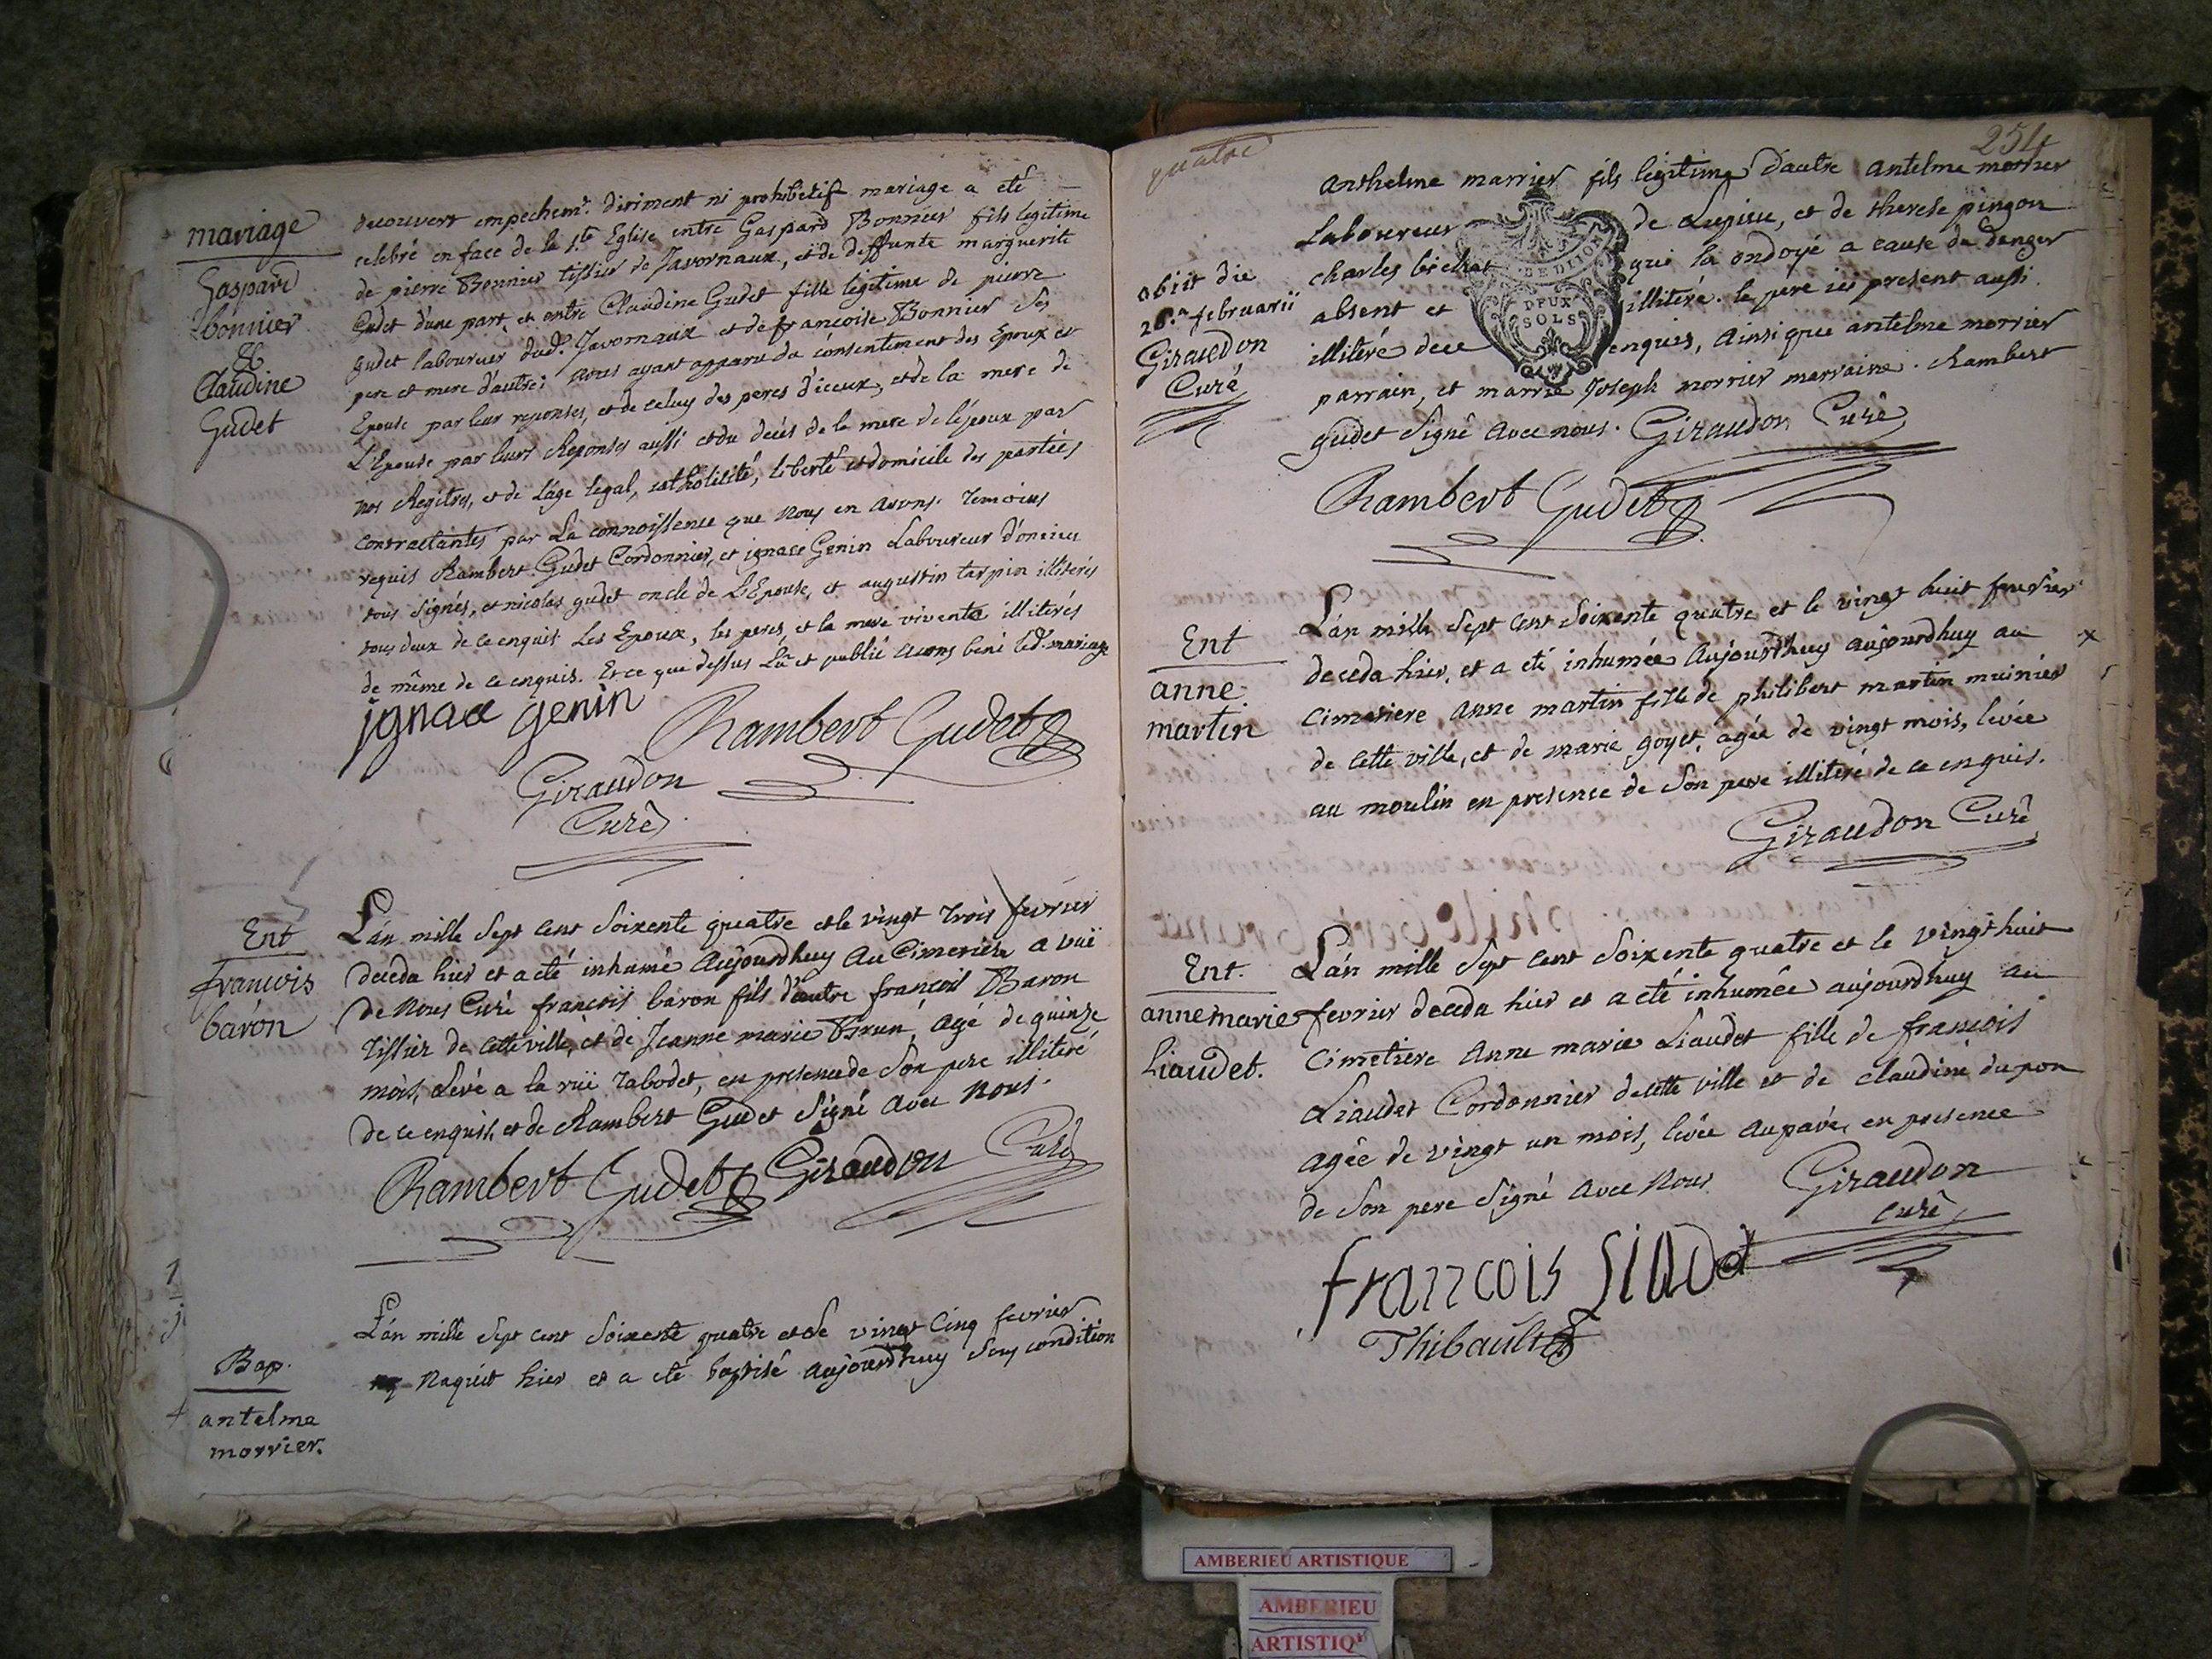 mariage
Gaspard
bonnier
&
Claudine
Gudet
decouvert empechemt. diriment ni prohibitif mariage a eté
celebré en face de la Ste Eglise entre Gaspard Bonnier fils legitime
de pierre Bonnier tissier de Javornaux, et de deffunte marguerite
Gudet d'une part, et entre Claudine Gudet fille legitime de pierre
gudet laboureur dud. Javornaux et de francoise Bonnier ses
pere et mere d'autre; nous ayant apparu du consentiment des Epoux et
Epouse par leur reponses, et de celuy des peres d'iceux, et de la mere de
L'Epouse par leurs Reponses aussi et du decés de la mere de l'époux par
nos Regitres, et de l'age legal, catholicité, liberté et domicile des parties
contractantes par La connoissence que nous en avons. Temoins
requis Rambert Gudet Cordonnier, et ignace Genin Laboureur d'oncieu
sous signés, et nicolas gudet oncle de L'Epouse, et augustin tarpin illiterés
tous deux de ce enquis Les Epoux, les peres, et la mere vivente illiterés
de même de ce enquis. Et ce que dessus Lû et publié avons beni led. mariage
ignace genin
Rambert Gudet
Giraudon
Curé
Ent
francois
baron
L'an mille sept cent soixente quatre et le vingt trois fevrier
deceda hier et a eté inhumé aujourdhuy au Cimetiere a vüe
de nous Curé françois baron fils d'autre francois Baron
tissier de cette ville, et de Jeanne marie Brun, agé de quinze
mois, levé a la rüe tabodet, en presence de son pere illiteré
de ce enquis, et de Rambert Gudet signé avec nous.
Rambert Gudet Giraudon Curé
Bap.
antelme
morrier.
L'an mille sept cent soixente quatre et le vingt cinq fevrier
naquit hier et a eté baptisé aujourdhuy sous condition
quatre
254
obiit die
26.a februarii
Giraudon
Curé
Anthelme marrier fils legitime d'autre antelme morrier
Laboureur de Lupieu, et de therese pingon
charles bichat qui la ondoyé a cause de danger
absent et illiteré. le pere ici present aussi
illiteré de ce enquis, Ainsi que antelme morrier
parrain, et marrie Joseph morrier marraine. Rambert
gudet signé avec nous. Giraudon Curé
DE DIJON
DEUX
SOLS
Rambert Gudet
Ent
anne
martin
L'an mille sept cent soixente quatre et le vingt huit fevrier
deceda hier, et a eté inhumée Aujourdhuy aujourdhuy au
cimetiere anne martin fille de philibert martin muinier
de cette ville, et de marie goyet, agée de vingt mois, levée
au moulin en presence de son pere illiteré de ce enquis.
Giraudon Curé
Ent.
anne marie
Liaudet.
L'an mille sept cent soixente quatre et le vingt huit
fevrier deceda hier et a eté inhumée aujourdhuy au
cimetiere Anne marie Liaudet fille de francois
Liaudet Cordonnier de cette ville et de claudine dupon
agée de vingt un mois, levée au pavé, en presence
de son pere signé avec nous
Giraudon
curé
francois Liaudet
Thibault
AMBERIEU ARTISTIQUE
AMBERIEU
ARTISTIQ